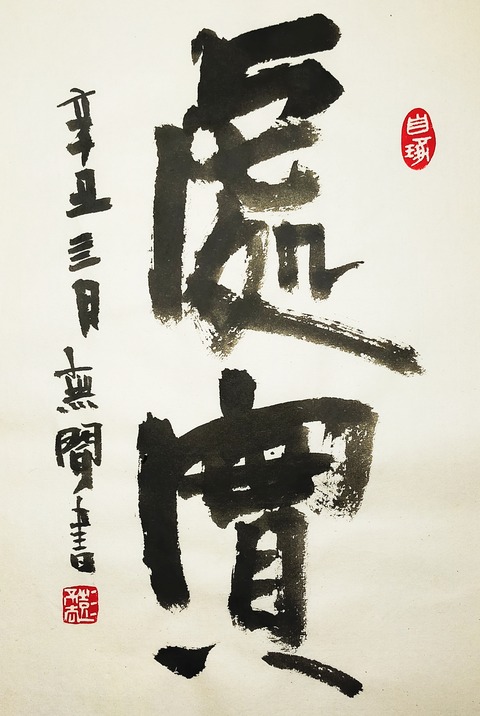 自琢
處實
辛丑三月無聞書